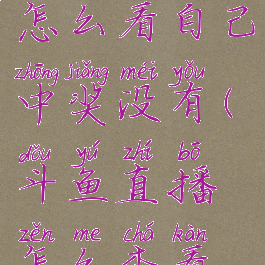 怎么看自己
zhōng jiǎng méi yǒu
中奖没有(
dǒu yú zhí bō
斗鱼直播
zěn me chá kàn
怎么查看